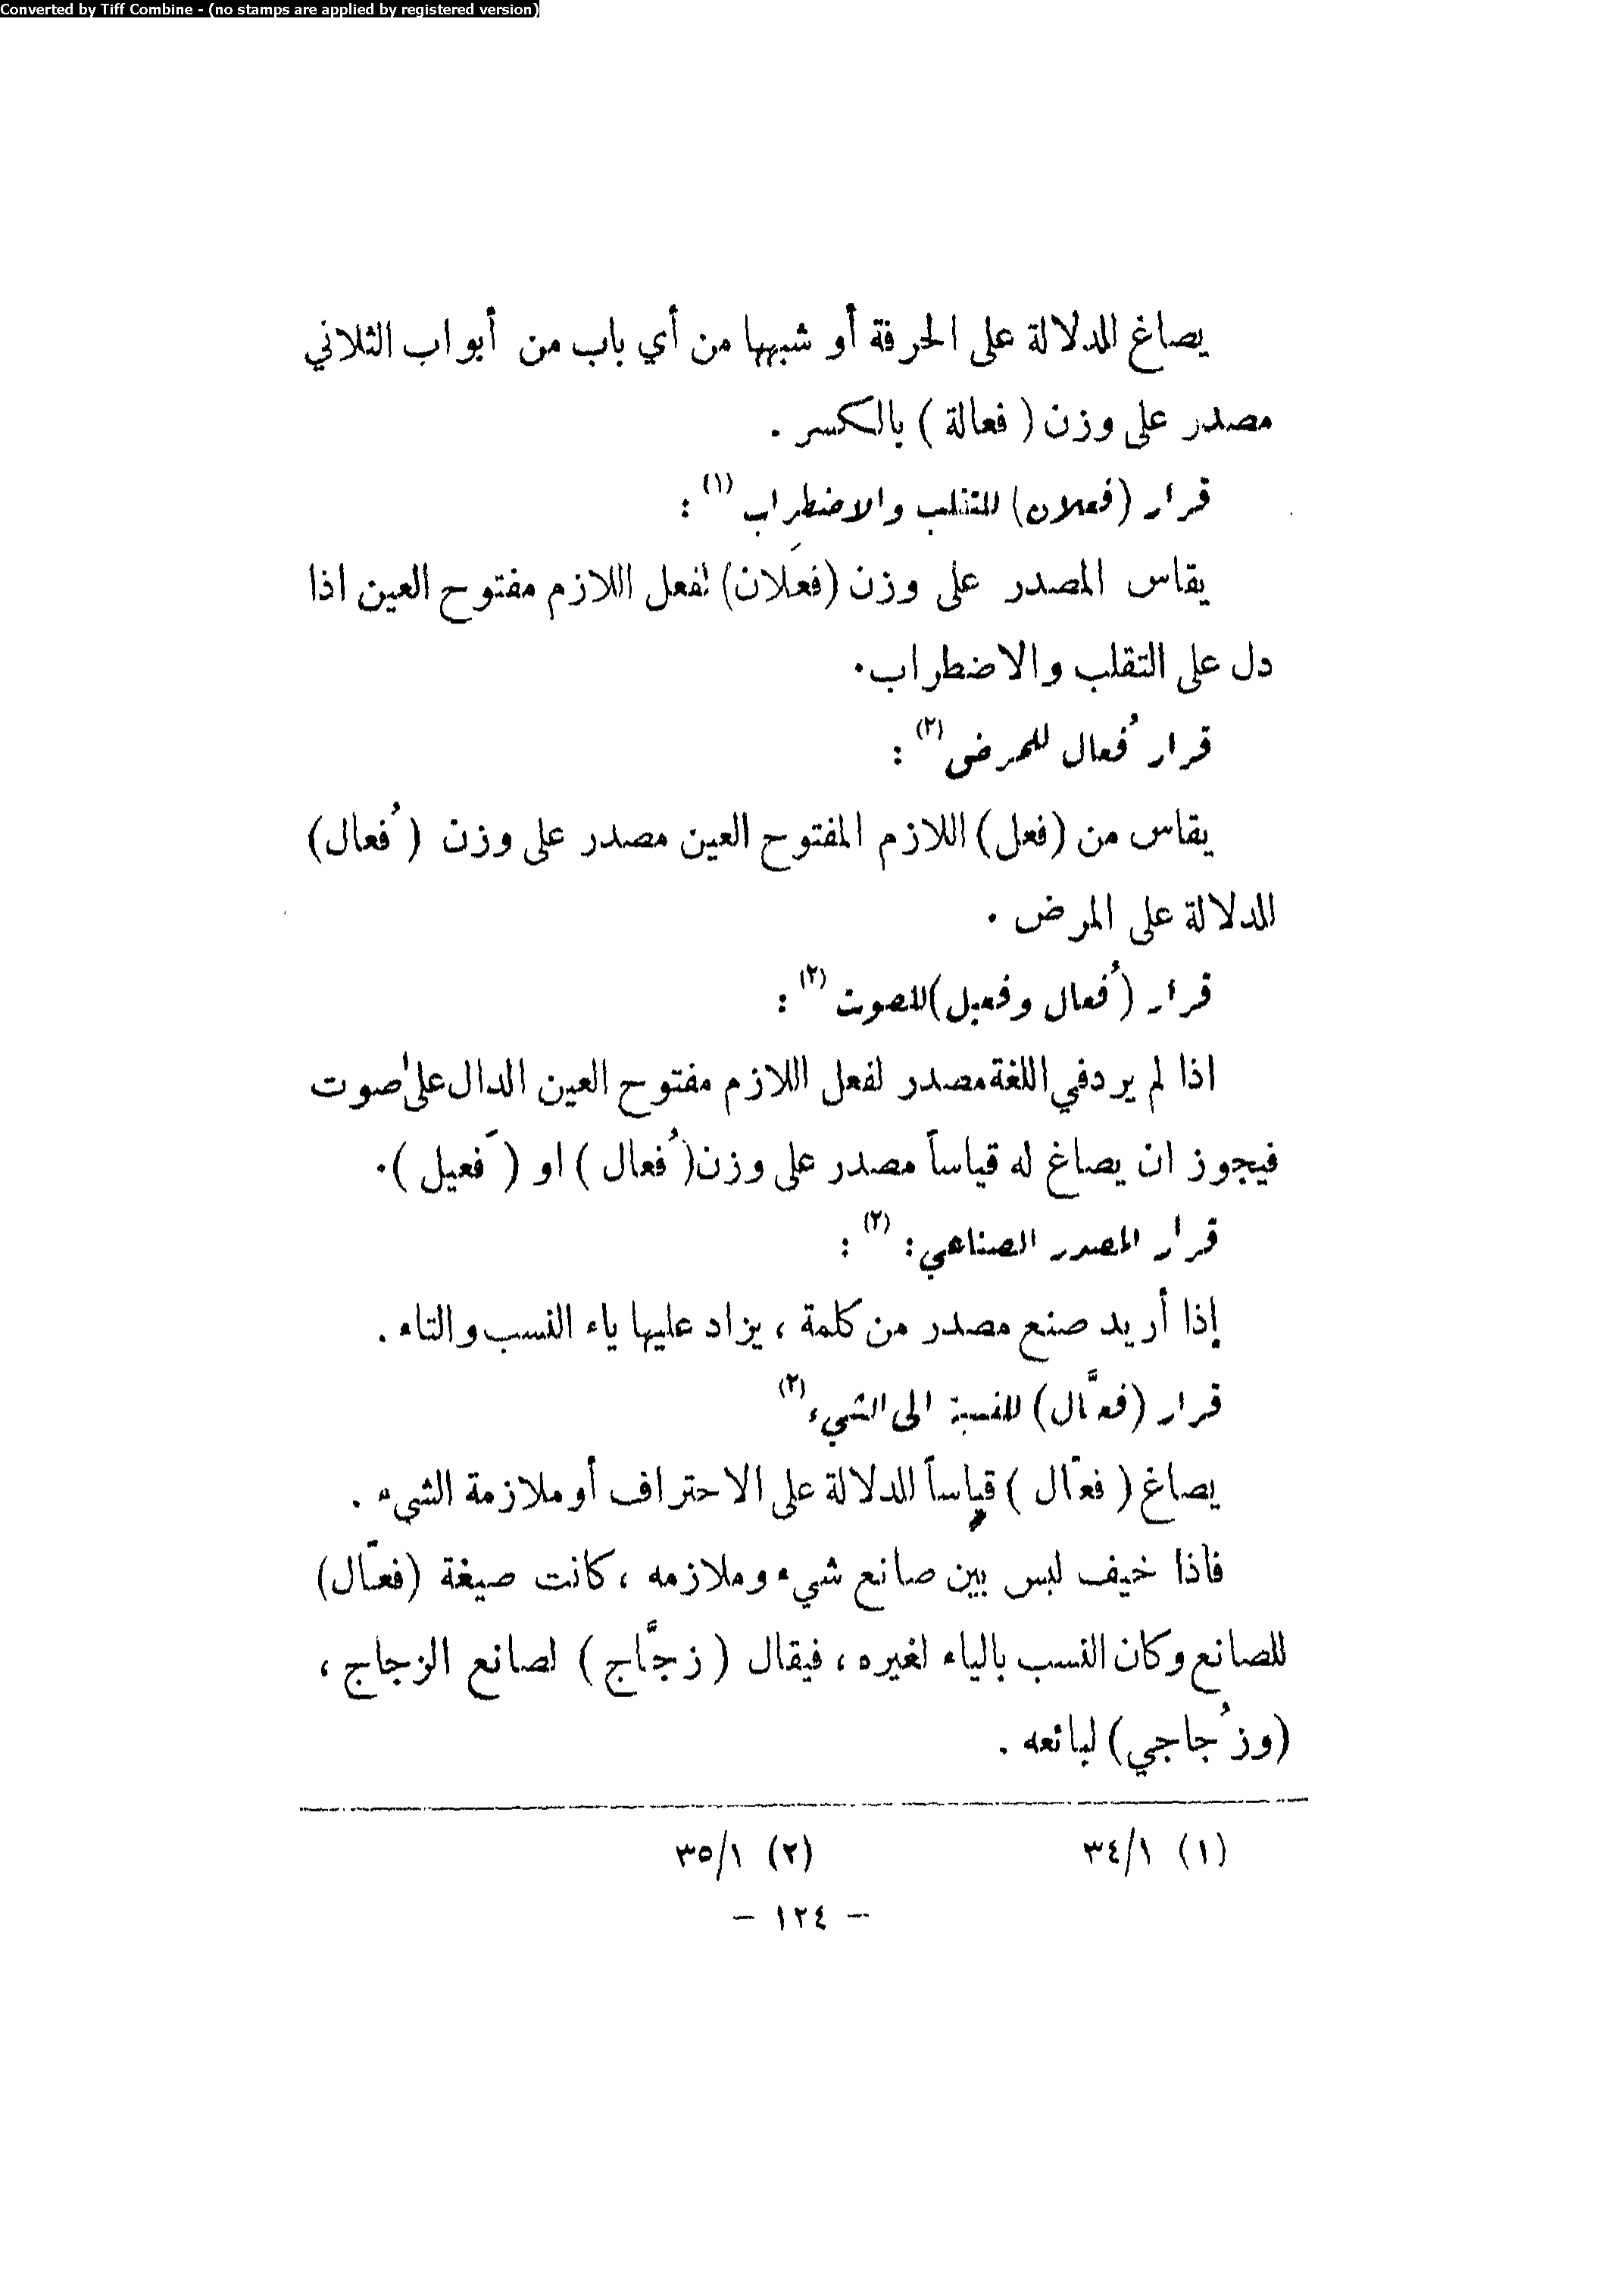 Converted by Tiff Combine - (no stamps are applied by registered version)
يصاغ للدلالة على الحرفة أو شبهها من أي باب من أبواب الثلاثي
مصدر على وزن ( فعالة ) بالكسر .
قرار (فعلان) للتقلب والاضطراب (١) :
يقاس المصدر على وزن (فعَلان) لفعل اللازم مفتوح العين اذا
دل على التقلب والاضطراب.
قرار فُعال للمرض (٢) :
يقاس من (فعل) اللازم المفتوح العين مصدر على وزن (فُعال)
للدلالة على المرض .
قرار (فُعال وفعيل) للصوت (٢) :
اذا لم يرد في اللغة مصدر لفعل اللازم مفتوح العين الدال على صوت
فيجوز ان يصاغ له قياساً مصدر على وزن (فُعال ) او (فَعيل ).
قرار المصدر الصناعي : (٢) :
إذا أريد صنع مصدر من كلمة ، يزاد عليها ياء النسب والتاء .
قرار (فعَّال) للنسبة الى الشيء (٢)
يصاغ ( فعّال ) قياساً للدلالة على الاحتراف أو ملازمة الشيء .
فاذا خيف لبس بين صانع شيء وملازمه ، كانت صيغة (فعّال)
للصانع وكان النسب بالياء لغيره ، فيقال ( زجَّاج ) لصانع الزجاج ،
(وزُجاجي) لبائعه .
(١) ٣٤/١ (٢) ٣٥/١
– ١٢٤ –